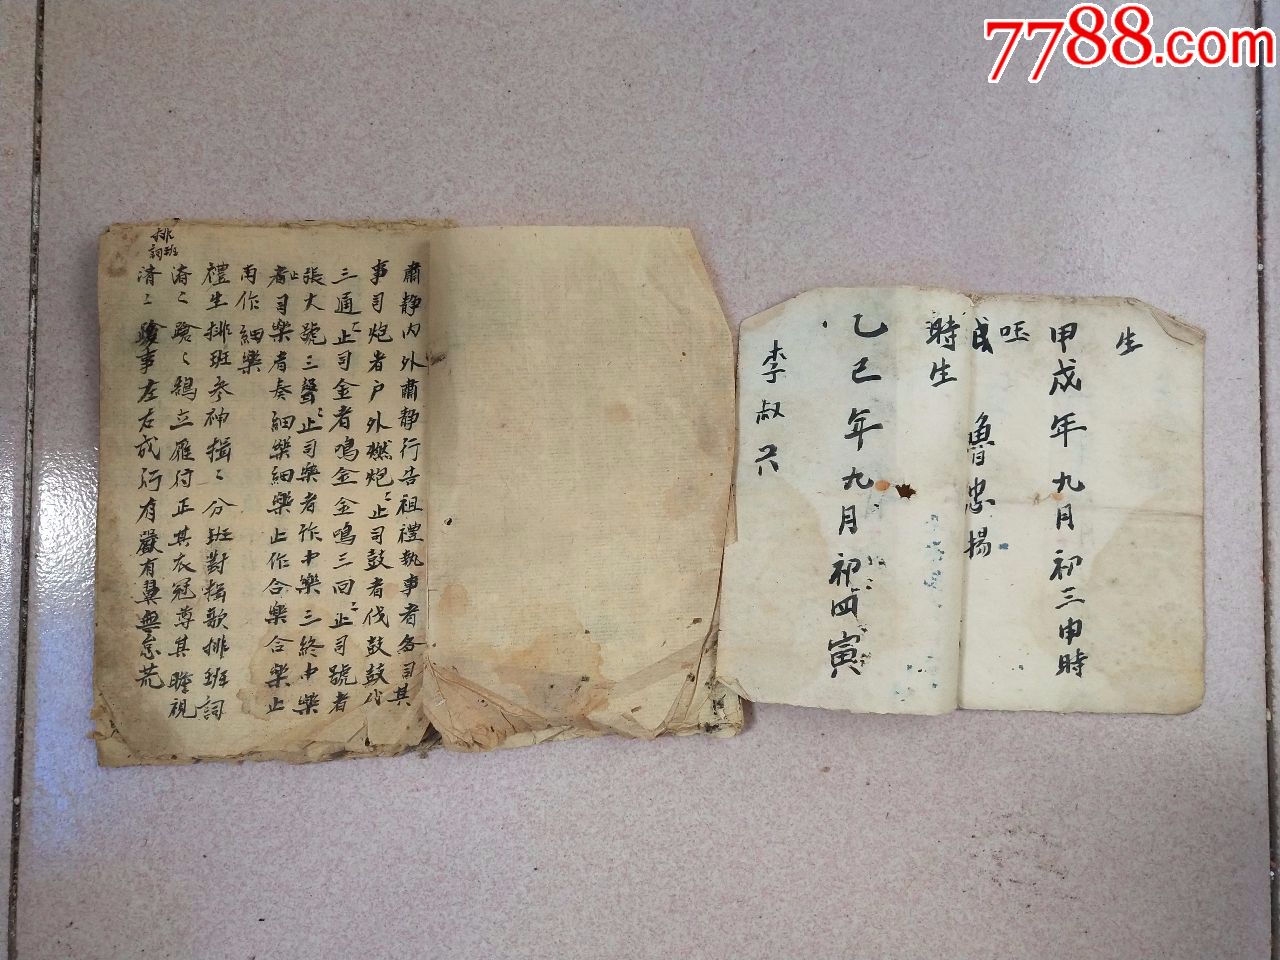 7788.com
生
甲戌年九月初三申時
魯忠揚
時生
乙巳年九月初四寅
李叔
肅静内外肅静行告祖禮執事者各司其
事司炮者户外燃炮〻止司鼓者伐鼓鼓伐
三通〻止司金者鳴金金鳴三回〻止司號者
張大號三聲〻止司樂者作中樂三終中樂
止者司樂者奏細樂細樂止作合樂合樂止
再作細樂
禮生排班參神輯〻分班對揖歌排班詞
排班詞
濟〻蹌〻鵠立雁行正其衣冠尊其瞻視
濟〻蹌事左右成行有嚴有翼無怠荒